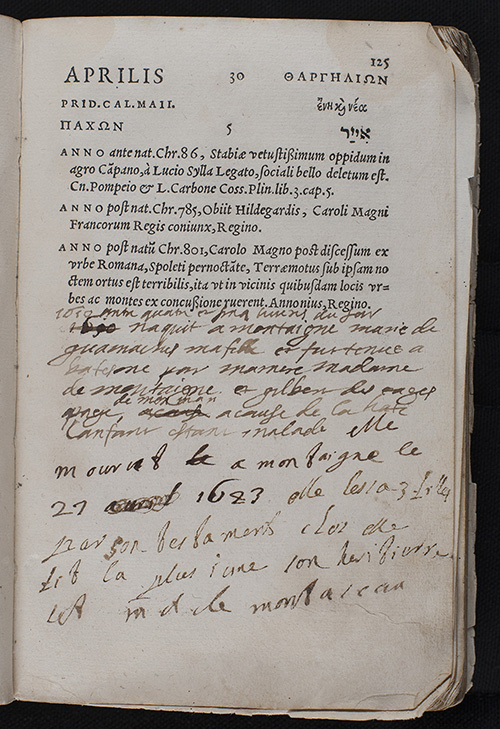 125
APRILIS 30 ΘΑΡΓΗΛΙΩΝ
PRID. CAL. MAII. ἕνη κỳ νέα
ΠΑΧΩΝ 5 אִיָּיר
ANNO ante nat. Chr. 86, Stabiæ vetustißimum oppidum in
agro Cãpano, à Lucio Sylla Legato, sociali bello deletum est.
Cn. Pompeio & L. Carbone Coss. Plin. lib. 3. cap. 5.
ANNO post nat. Chr. 785, Obiit Hildegardis, Caroli Magni
Francorum Regis coniunx, Regino.
ANNO post natũ Chr. 801, Carolo Magno post discessum ex
vrbe Romana, Spoleti pernoctãte, Terræmotus sub ipsam no
ctem ortus est terribilis, ita vt in vicinis quibusdam locis vr=
bes ac montes ex concußione ruerent. Annonius, Regino.
entre quatre et du soir
naquit a montaigne marie de
ma fille et fut tenue a
par madame
de montaigne et gilbert des
de a cause de la hate
l'anfant estant malade elle
mourut a montaigne le
27 1683 elle lessa 3 filles
par son testament elle
fit la plus jeune son heritiere